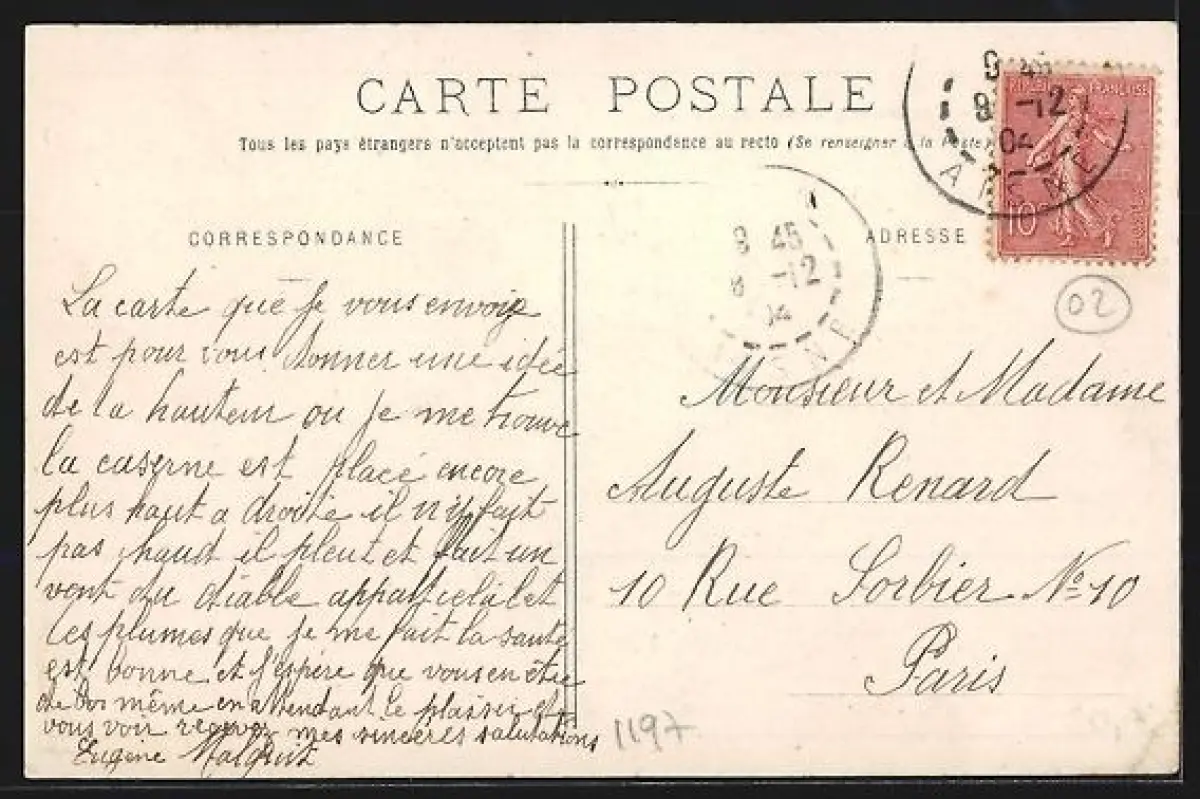 CARTE POSTALE
Tous les pays étrangers n'acceptent pas la correspondance au recto (Se renseigner à la Poste)
CORRESPONDANCE
La carte que je vous envoie
est pour vous donner une idée
de la hauteur ou je me trouve
la caserne est placé encore
plus haut a droite il n'y fait
pas chaud il pleut et fait un
vent du diable appart cela et
les plumes que je me fait la santé
est bonne et j'espère que vous en ête
de vos même en attendant le plaisir de
vous voir recevez mes sincères salutations
Eugène
ADRESSE
Monsieur et Madame
Auguste Renard
10 Rue Sorbier No 10
Paris
1197
02
REPUBLIQUE FRANÇAISE
10
POSTES
9 45
8 -12
04
AISNE
9 45
8 -12
04
AISNE